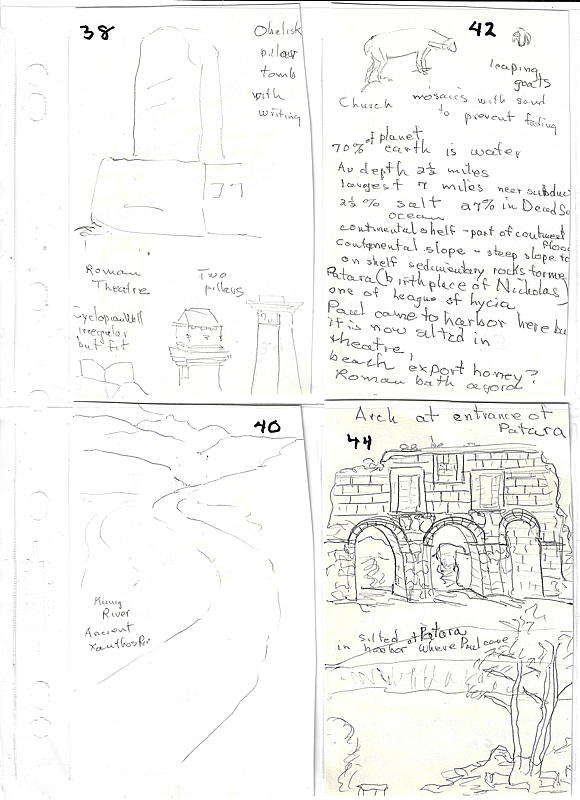 38
Obelisk
pillar
tomb
with
writing
Roman
Theatre
Two
pillars
Cyclopian Wall
irregular
but fit
42
leaping
goats
Church mosaics with sand
to prevent fading
of planet
70% earth is water
Av depth 2½ miles
largest 7 miles near subduc
2½% salt 27% in Dead Se
ocean
continental shelf - part of continent
continental slope - steep slope to
on shelf sedimentary rocks forme
Patara (birthplace of Nicholas)
one of league of lycia
Paul came to harbor here bu
it is now silted in
theatre,
beach export honey?
Roman bath agora
40
River
Ancient
Xanthos Ri
Arch at entrance of
Patara
44
silted at Patara
in harbor where Paul came